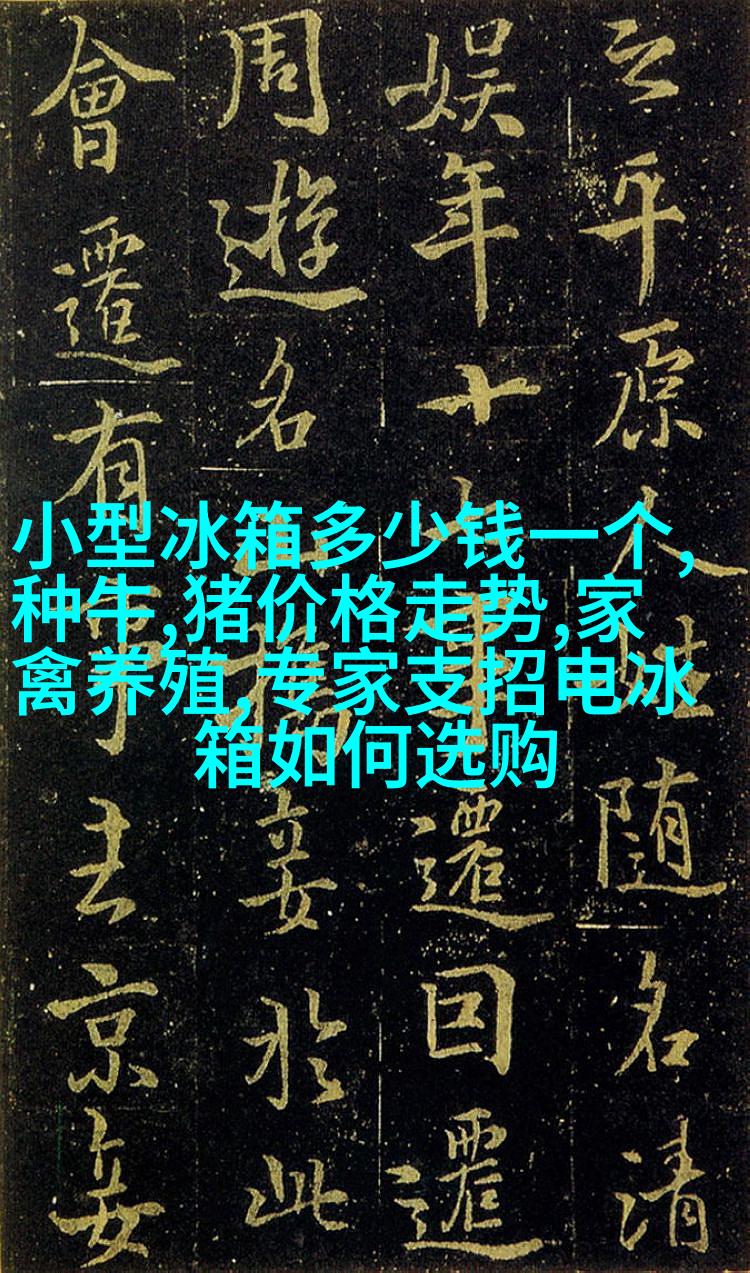 小型冰箱多少钱一个,
种牛,猪价格走势,家
禽养殖,专家支招电冰
箱如何选购
之平原人姓随名清
娱年十七事還回還
周遊名山於此
會還有事京